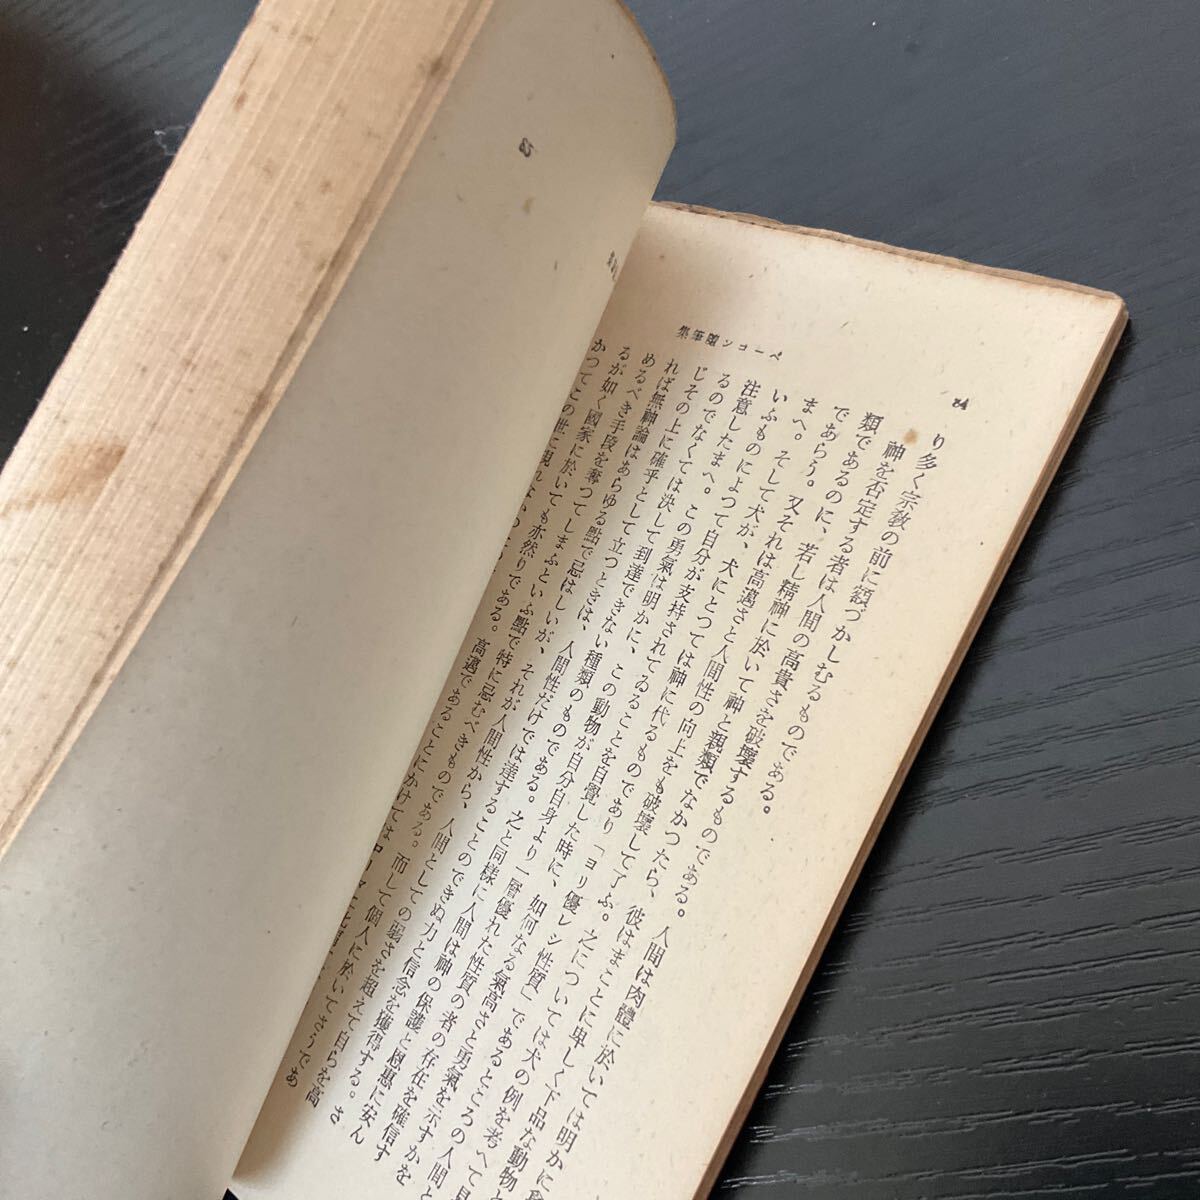 84
ベーコン隨筆集
り多く宗教の前に額づかしむるものである。
神を否定する者は人間の高貴さを破壞するものである。人間は肉體に於いては明かに
類であるのに、若し精神に於いて神と親類でなかつたら、彼はまことに卑しく下品な動物
であらう。又それは高邁さと人間性の向上をも破壞して了ふ。之については犬の例を考へて
まへ。そして犬が、犬にとつては神に代るものであり「ヨリ優レシ性質」である
いふものによつて自分が支持されてゐることを自覺した時に、如何なる氣高さと勇氣を示すかを
注意したまへ。この勇氣は明かに、この動物が自分自身より一層優れた性質の者の存在を確信す
るのでなくては決して到達できない種類のものである。之と同樣に人間は神の保護と恩惠に安ん
じその上に確乎として立つときは、人間性だけでは達することのできぬ力と信念を獲得する。さ
れば無神論はあらゆる點で忌はしいが、それが人間性から、人間としての弱さを超えて自らを高
めるべき手段を奪つてしまふといふ點で特に忌むべきものである。而して個人に於いてさうであ
るが如く國家に於いても亦然りである。高邁であることにかけては
かつてこの世に現れ